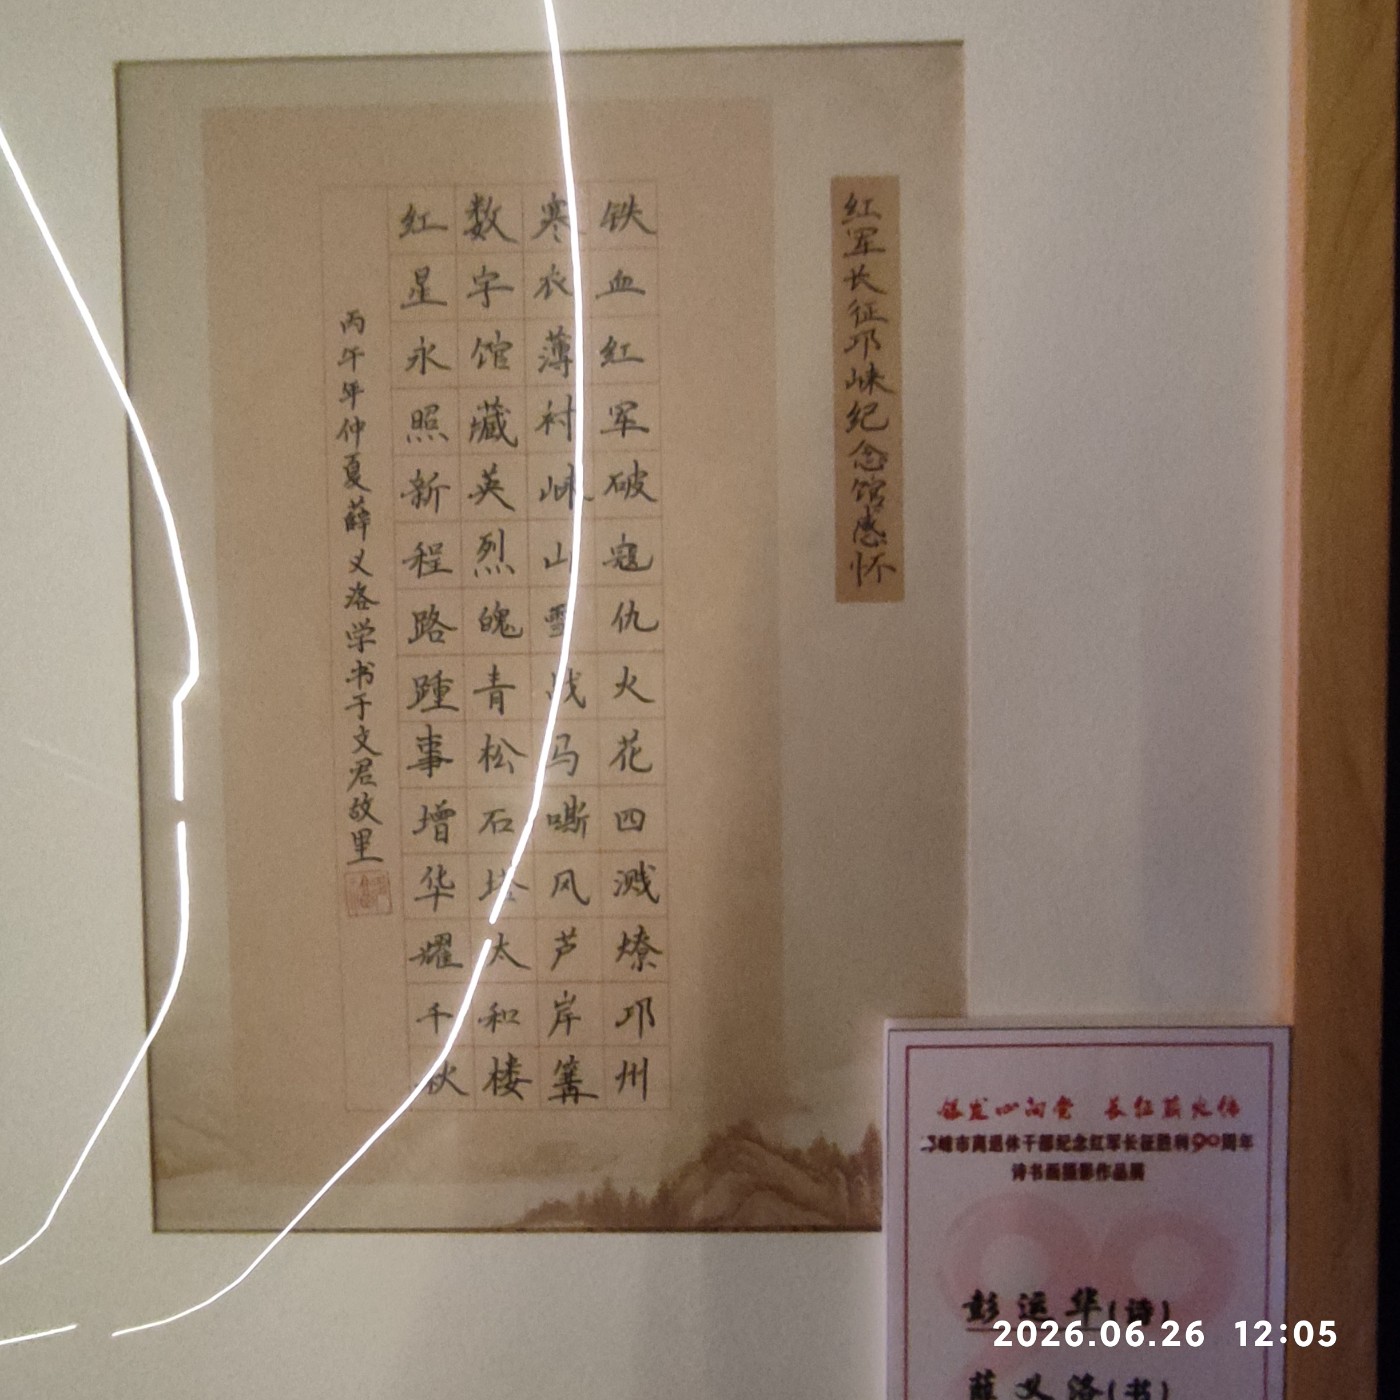 红军长征邛崃纪念馆感怀
铁血红军破寇仇火花四溅燎邛州
寒衣薄衬崃山雪战马嘶风芦岸篝
数字馆藏英烈魄青松石塔太和楼
红星永照新程路踵事增华耀千秋
丙午年仲夏薛义洛学书于文君故里
银发心向党 长征薪火传
邛崃市离退休干部纪念红军长征胜利90周年
诗书画摄影作品展
彭运华(诗)
薛义洛(书)
2026.06.26 12:05